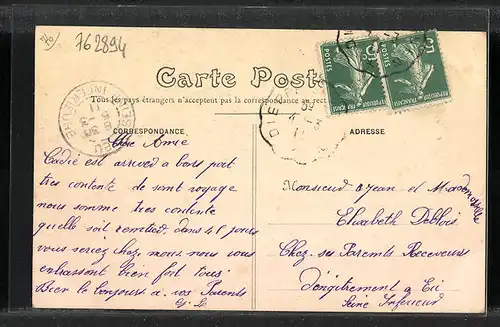 762894
Carte Posta
Tous les pays étrangers n'acceptent pas la correspondance au rec
CORRESPONDANCE
ADRESSE
POSTES
REPUBLIQUE FRANÇAISE
POSTES
REPUBLIQUE FRANÇAISE
SEINE INFERIEURE
DIEPPE
Chère Amie
est arrived a bors port
tres contente de sont voyage
nous somme tres contente
quelle soit dans 45 jours
vous seriez chez nous nous vous
embrassont bien fort tous
Bien le bonjourt a vos Parents
Monsieur et Mademoiselle
Elisabeth Deblois
Chez ses Parents Receveurs
d'engitrement a Eu
Seine Inferieur